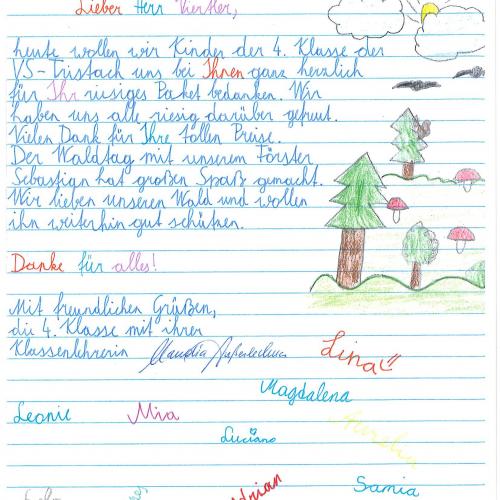 Lieber Herr Viertler,
heute wollen wir Kinder der 4. Klasse der
VS-Tristach uns bei Ihnen ganz herzlich
für Ihr riesiges Paket bedanken. Wir
haben uns alle riesig darüber gefreut.
Vielen Dank für Ihre tollen Preise.
Der Waldtag mit unserem Förster
Sebastian hat großen Spaß gemacht.
Wir lieben unseren Wald und wollen
ihn weiterhin gut schützen.
Danke für alles!
Mit freundlichen Grüßen,
die 4. Klasse mit ihrer
Klassenlehrerin Claudia
Lina
Magdalena
Leonie Mia
Aurelia
Luciano
Samia